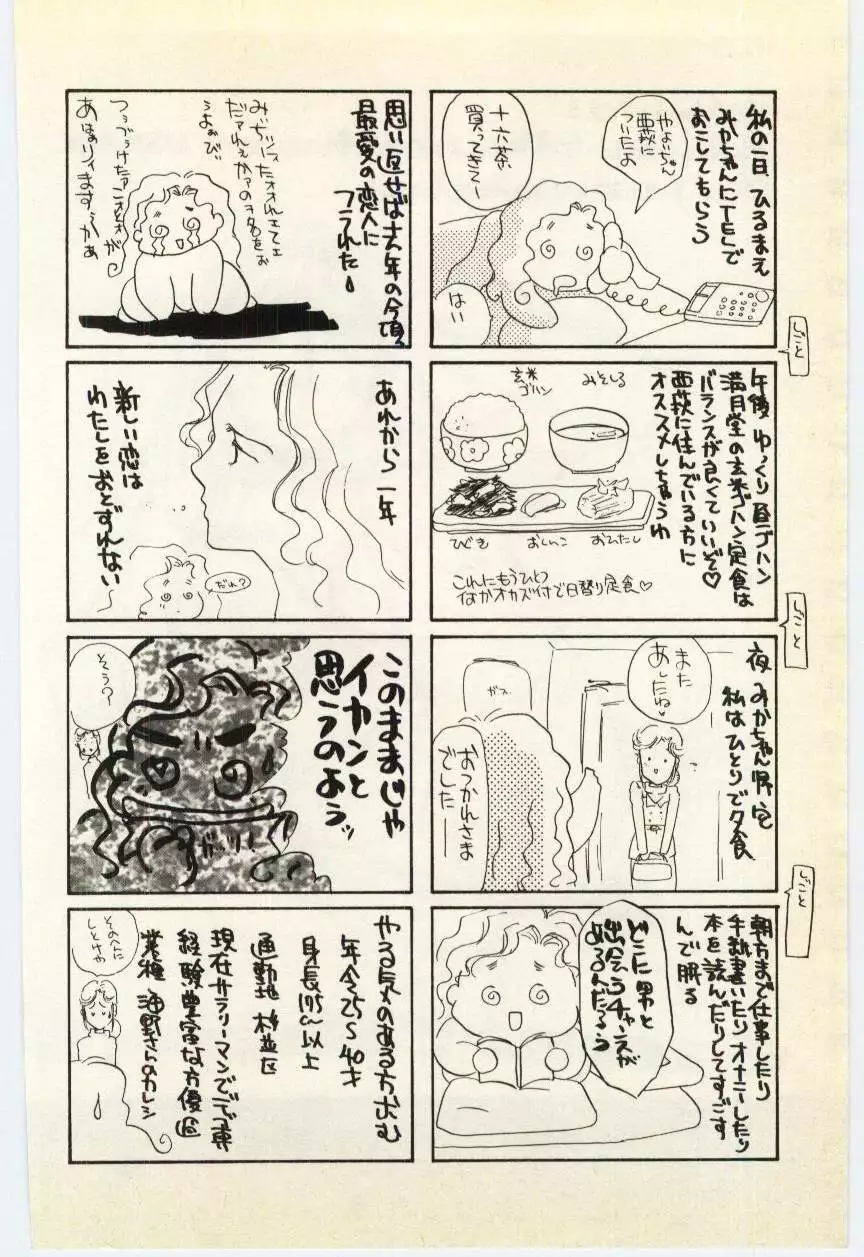 私の一日 ひるまえ
みかちゃんにTELで
おこしてもらう
やよいちゃん
西荻に
ついたよ
十六茶
買ってきてー
はい
しごと
午後 ゆっくり昼ゴハン
満月堂の玄米ゴハン定食は
バランスが良くていいぞ♡
西荻に住んでいる方に
オススメしちゃうわ
みそしる
玄米
ゴハン
ひじき
おしんこ
おひたし
これにもうひとつ
なかオカズ付で日替り定食♡
しごと
夜 みかちゃん帰宅
私はひとりで夕食
また
あしたね♡
ガス
おつかれさま
でした――
しごと
朝方まで仕事したり
手紙書いたりオナニーしたり
本を読んだりしてすごす
んで眠る
どこに男と
出会うチャンスが
あるんだろう
思い返せば去年の今頃、
最愛の恋人に
フラれた
うよぉびぃ
あれから一年
新しい恋は
わたしをおとずれない〜
だれ?
このままじゃ
イカンと
思うのよぅッ
そう?
やる気のある方求む
年令25〜40才
身長175cm以上
通勤地 杉並区
現在サラリーマンでデブ専
経験豊富な方優遇
業種 海野さんのカレシ
そのへんに
しとけや